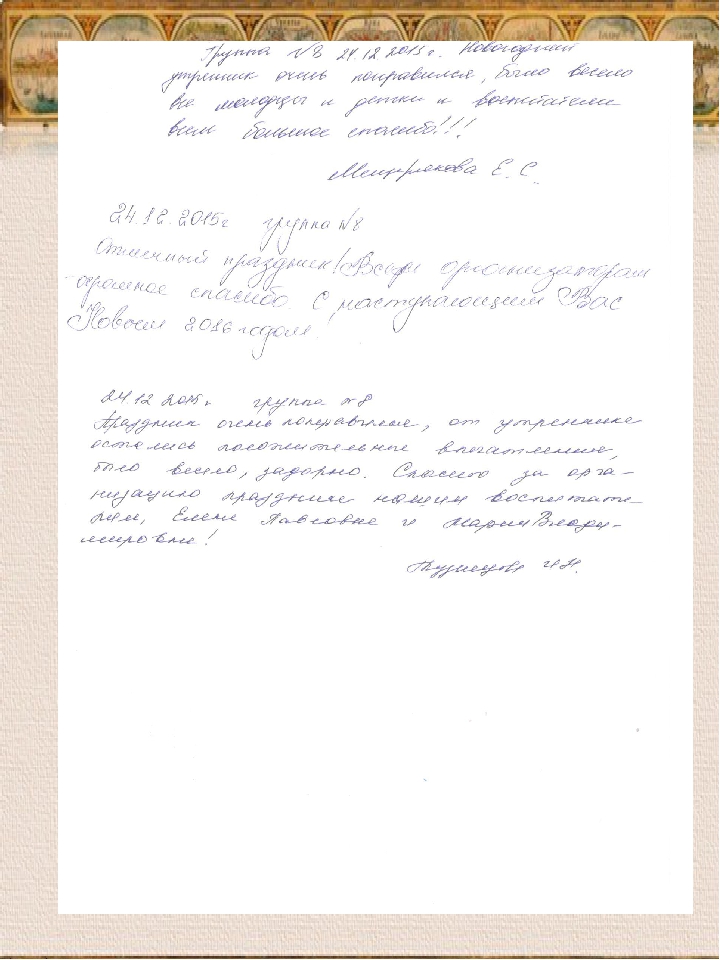 Группа №8 24.12.2015г. Новогодний
утренник очень понравился, было весело
все молодцы и детки и воспитатели
всем большое спасибо!!!
Е. С.
24.12.2015г группа №8
Отличный праздник! Всем организаторам
огромное спасибо. С наступающим Вас
Новым 2016 годом!
24.12 2015г группа №8
Праздник очень понравился, от утренника
остались положительные впечатления,
было весело, задорно. Спасибо за орга-
низацию праздника нашим воспитате-
лям, Елене Павловне и Марии Влади-
мировне!
Кузнецова И.Н.